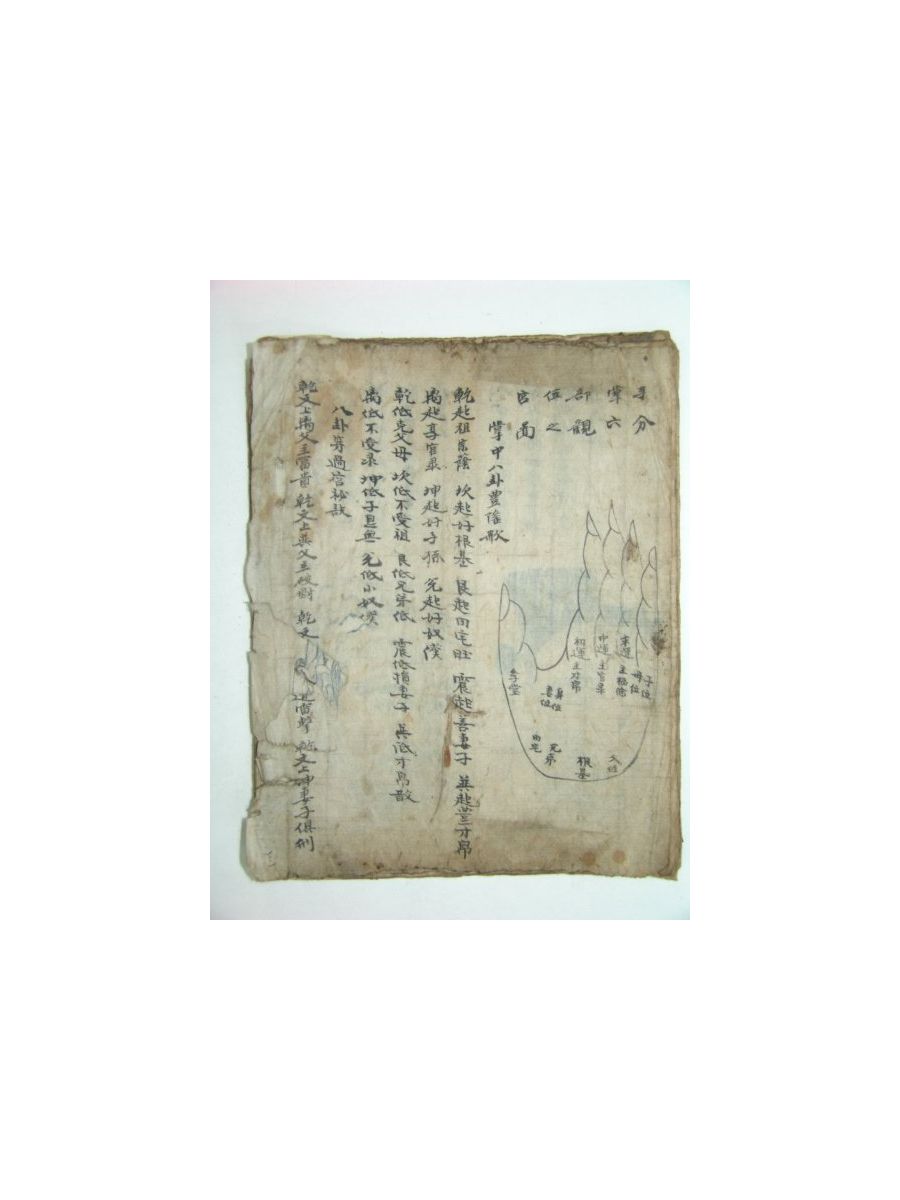 手分
掌六
部觀
位之
宮圖
掌中八卦豊傜歌
乾起祖宗蔭 坎起好根基 艮起田宅旺 震起善妻子 巽起豊才帛
离起享官彔 坤起好子孫 兌起好奴僕
乾低克父母 坎低不受祖 艮低兄弟低 震低損妻子 巽低才帛散
离低不受录 坤低子息無 兌低小奴僕
八卦筭過宮秘訣
乾文上离父主富貴 乾文上巽父主破財 乾文 雷擊 乾文上坤妻子俱刑
初運主才帛
中運主官彔
末運主福德
子位
母位
孝堂
身位
妻位
田宅
兄弟
根基
父位